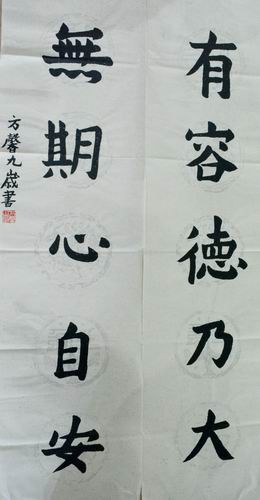 有容德乃大
無期心自安
方馨九歲書